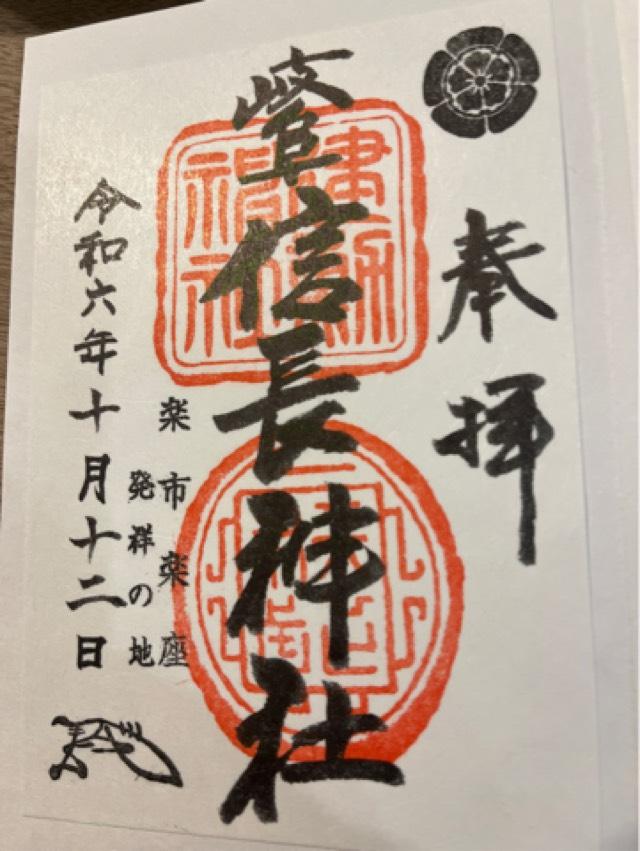 奉拝
岐阜信長神社
楽市楽座
発祥の地
令和六年十月十二日